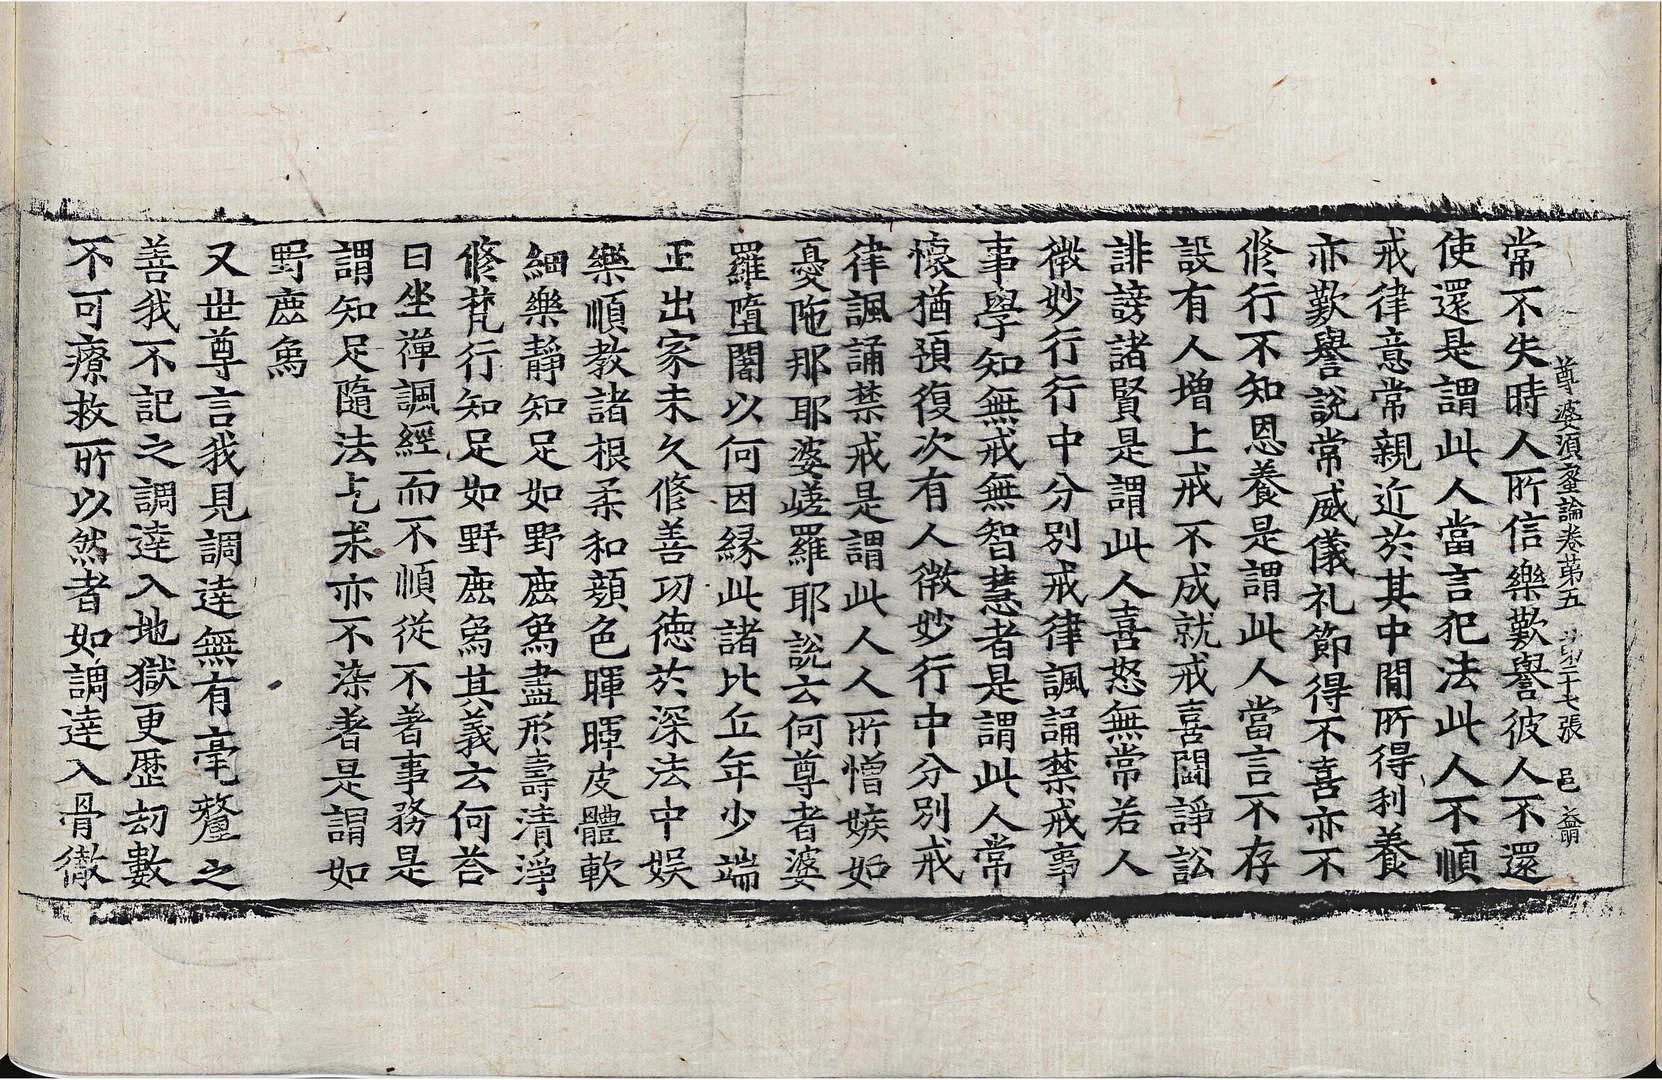 尊婆須蜜論卷第五　第二十七張　邑
常不失時人所信樂歎譽彼人不還
使還是謂此人當言犯法此人不順
戒律意常親近於其中間所得利養
亦歎譽說常威儀礼節得不喜亦不
修行不知恩養是謂此人當言不存
設有人增上戒不成就戒喜鬪諍訟
誹謗諸賢是謂此人喜怒無常若人
微妙行行中分別戒律諷誦禁戒事
事學知無戒無智慧者是謂此人常
懷猶預復次有人微妙行中分別戒
律諷誦禁戒是謂此人人所憎嫉妬
憂陁那耶婆嵯羅耶說云何尊者婆
羅墮闍以何因緣此諸比丘年少端
正出家未久修善功德於深法中娛
樂順教諸根柔和顏色暉暉皮體軟
細樂靜知足如野鹿爲盡形壽清淨
修梵行知足如野鹿爲其義云何荅
曰坐禪諷經而不順從不著事務是
謂知足隨法乞求亦不染著是謂如
野鹿爲
又世尊言我見調達無有毫釐之
善我不記之調達入地獄更歷劫數
不可療救所以然者如調達入骨徹